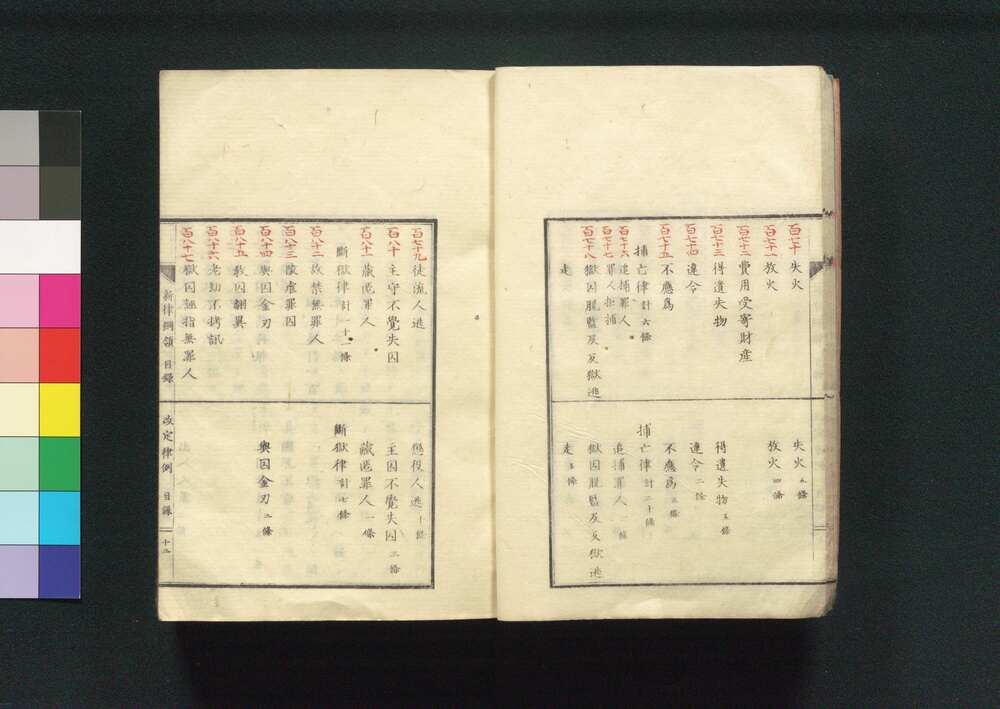 百七十 失火
百七十一 放火
百七十二 費用受寄財産
百七十三 得遺失物
百七十四 違令
百七十五 不應爲
捕亡律 計六條
百七十六 追捕罪人
百七十七 罪人拒捕
百七十八 獄囚脱監及反獄逃
走
失火 五條
放火 四條
得遺失物 五條
違令 二條
不應爲 五條
捕亡律 計二十條
追捕罪人 條
獄囚脱監及反獄逃
走 五條
百七十九 徒流人逃
百八十 主守不覺失囚
百八十一 藏匿罪人
斷獄律 計十一條
百八十二 故禁無罪人
百八十三 陵虐罪囚
百八十四 與囚金刃
百八十五 教囚飜異
百八十六 老幼不拷訊
百八十七 獄囚誣指無罪人
懲役人逃 十條
主囚不覺失囚 二條
藏匿罪人 一條
斷獄律 計七條
與囚金刃 二條
新律綱領 目録
改定律例 目録 十二